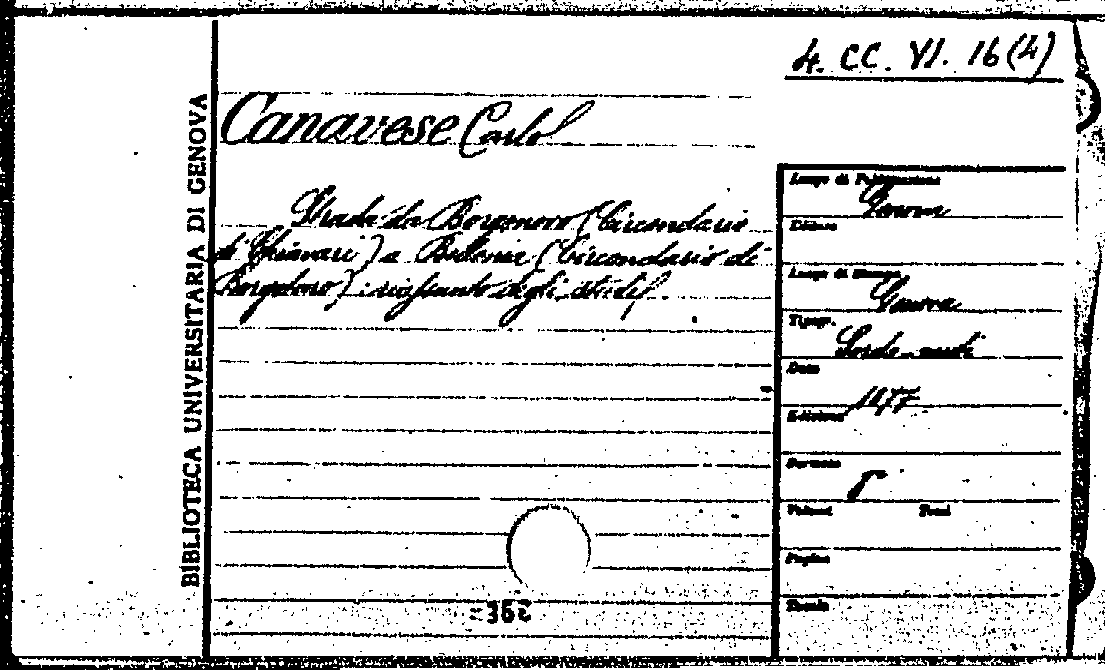 4. CC. VI. 16(4)
BIBLIOTECA UNIVERSITARIA DI GENOVA
Canavese Carlo
Strada da Borgonovo (Circondario
di Chiavari) a Bedonia (Circondario di
Borgotaro): riassunto degli studi.
Luogo di Pubblicazione
Genova
Editore
Luogo di Stampa
Genova
Tipogr.
Sordo-muti
Data
1877
Edizione
Formato
8
Volumi Tomi
Pagine